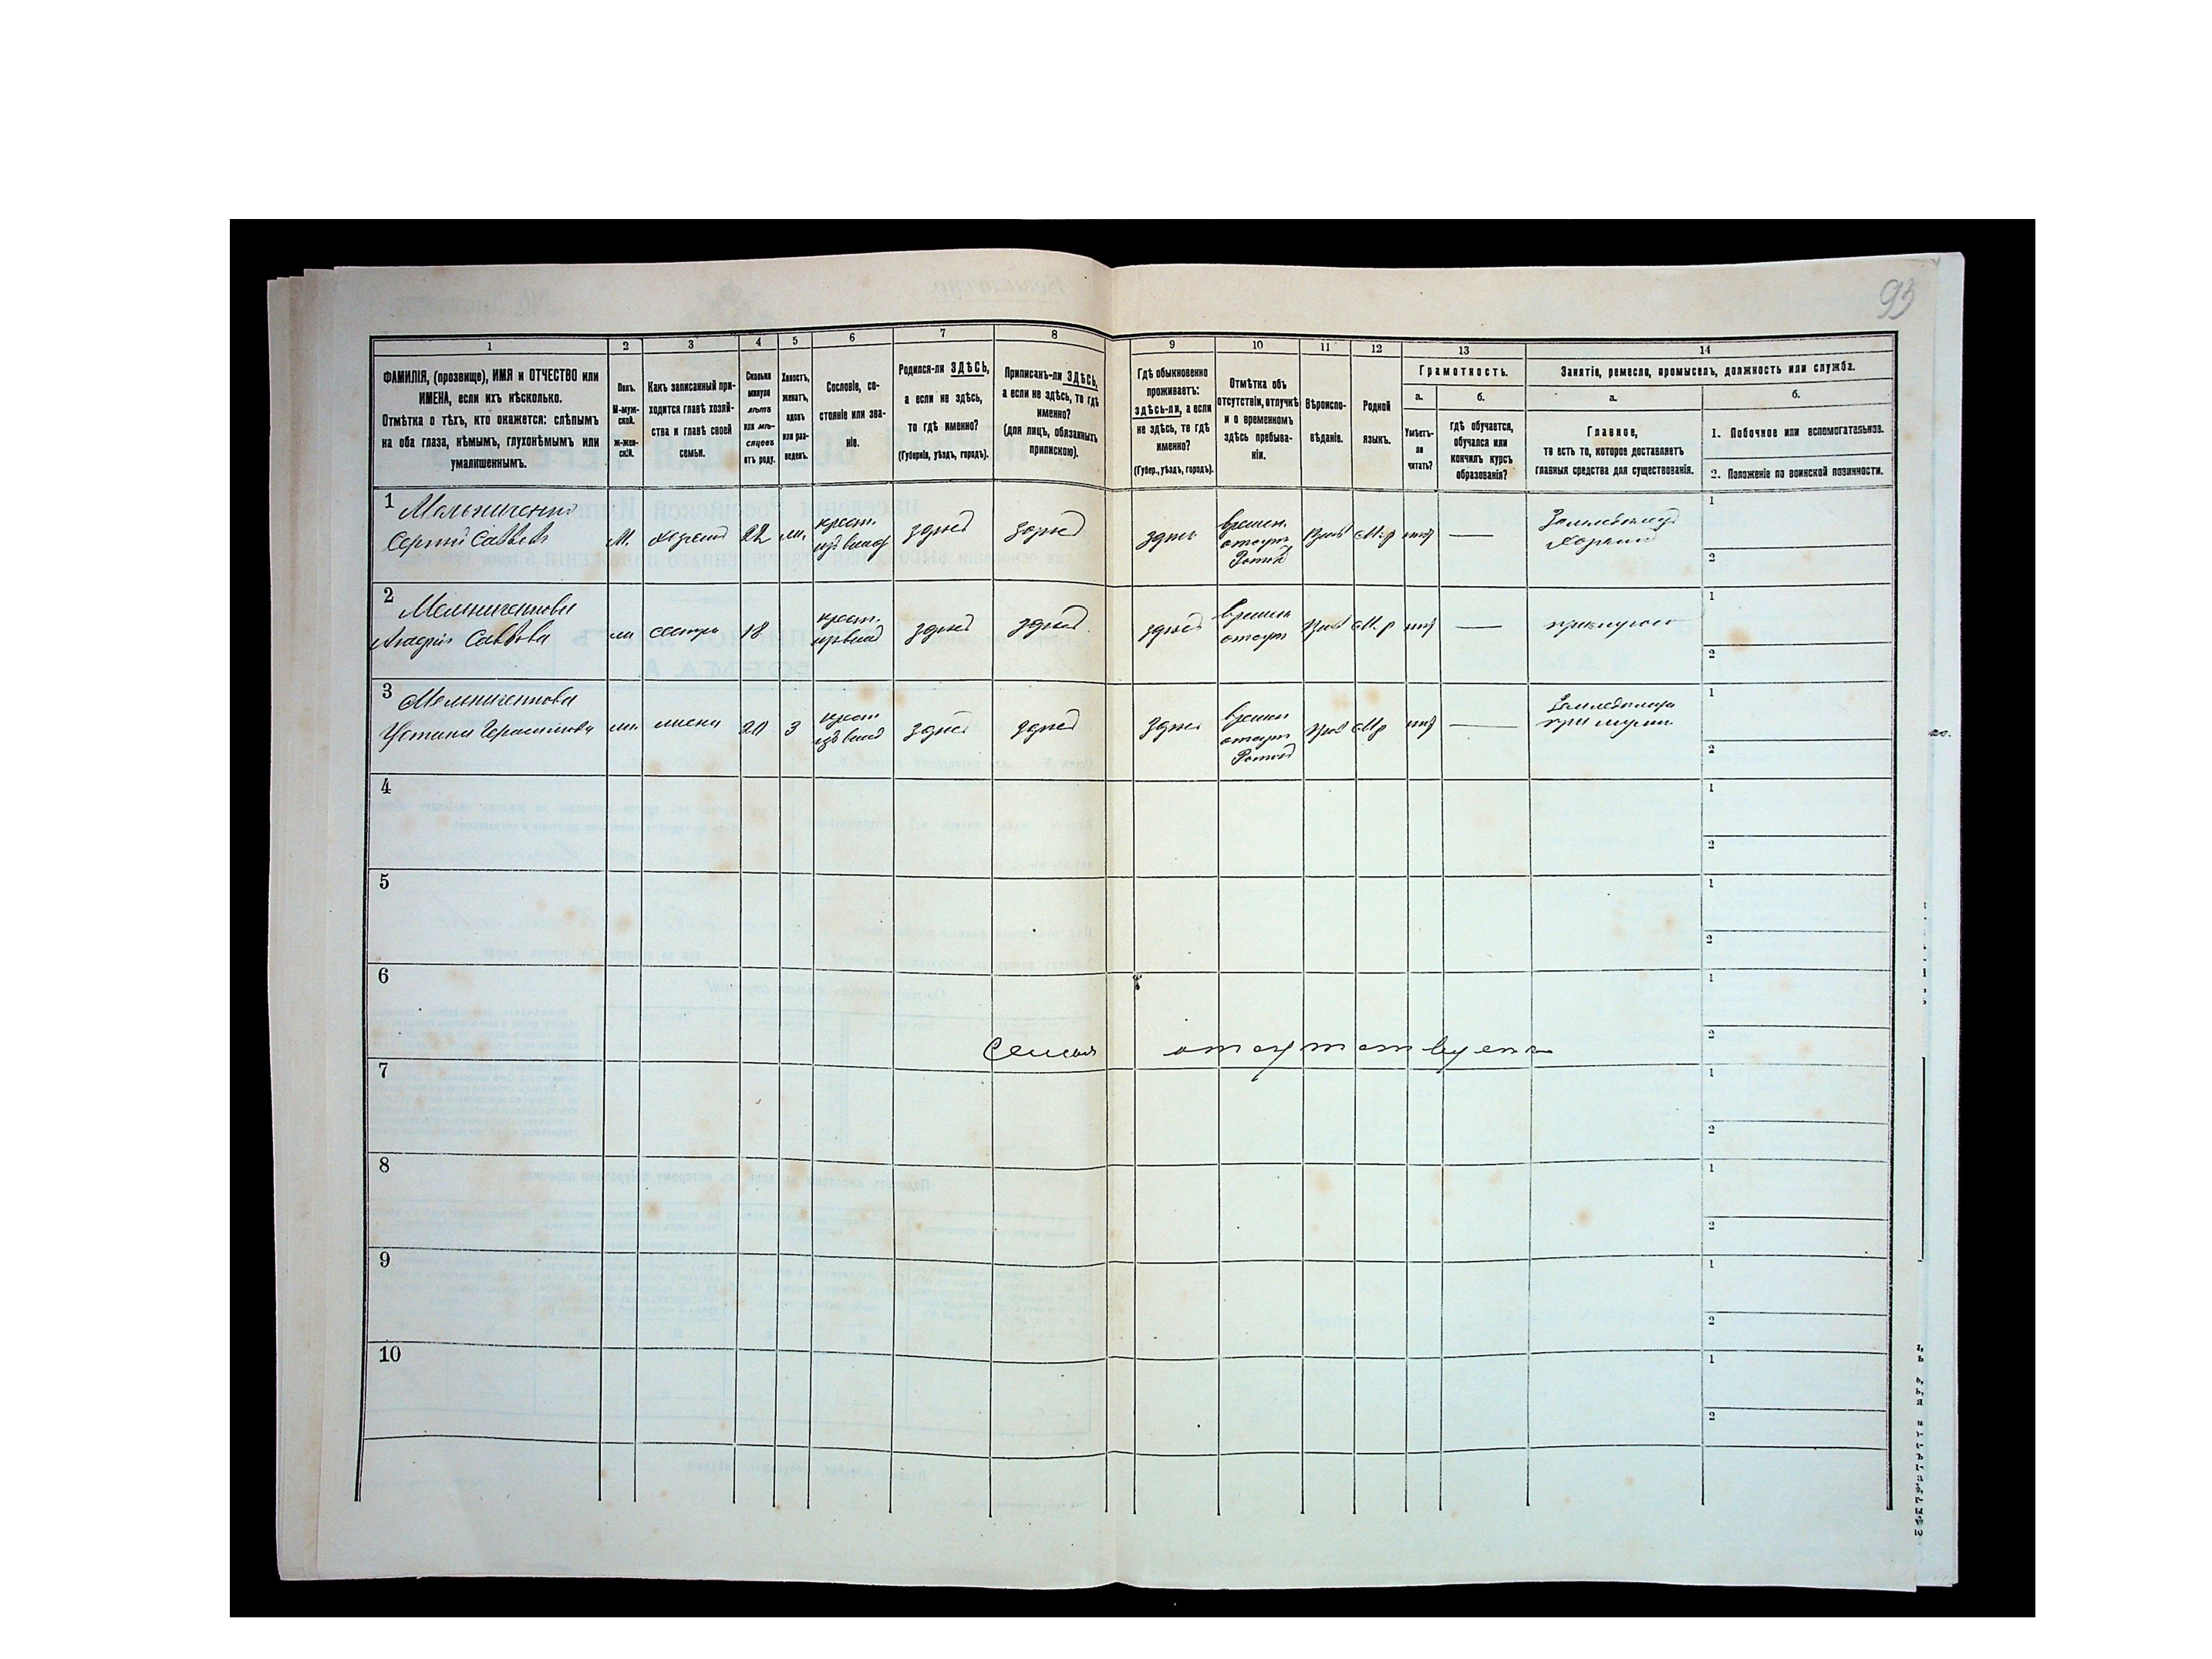 93
1
ФАМИЛІЯ, (прозвище), ИМЯ и ОТЧЕСТВО или
ИМЕНА, если ихъ нѣсколько.
Отмѣтка о тѣхъ, кто окажется: слѣпымъ
на оба глаза, нѣмымъ, глухонѣмымъ или
умалишеннымъ.
2
Полъ.
М-муж-
ской.
Ж-жен-
скій.
3
Какъ записанный при-
ходится главѣ хозяй-
ства и главѣ своей
семьи.
4
Сколько
минуло
лѣтъ
или мѣ-
сяцевъ
отъ роду.
5
Холостъ,
женатъ,
вдовъ
или раз-
веденъ.
6
Сословіе, со-
стояніе или зва-
ніе.
7
Родился-ли ЗДѢСЬ,
а если не здѣсь,
то гдѣ именно?
(Губернія, уѣздъ, городъ).
8
Приписанъ-ли ЗДѢСЬ,
а если не здѣсь, то гдѣ
именно?
(для лицъ, обязанныхъ
припискою).
9
Гдѣ обыкновенно
проживаетъ:
здѣсь-ли, а если
не здѣсь, то гдѣ
именно?
(Губер., уѣздъ, городъ).
10
Отмѣтка объ
отсутствіи, отлучкѣ
и о временномъ
здѣсь пребыва-
ніи.
11
Вѣроиспо-
вѣданіе.
12
Родной
языкъ.
13
Грамотность.
а.
Умѣетъ-
ли
читать?
б.
гдѣ обучается,
обучался или
кончилъ курсъ
образованія?
14
Занятіе, ремесло, промыселъ, должность или служба.
а.
Главное,
то есть то, которое доставляетъ
главныя средства для существованія.
б.
1. Побочное или вспомогательное.
2. Положеніе по воинской повинности.
1
Мельниченко
Сергій Саввовъ
М.
хозяинъ
22
крест.
здѣсь
здѣсь
здѣсь
времен.
отсут.
М.р
нѣт
—
1
2
2
Мельниченкова
Саввова
сестра
18
крест.
здѣсь
здѣсь
здѣсь
времен
отсут
М.р
нѣт
—
1
2
3
Мельниченкова
Устина Герасимова
жена
20
З
крест
здѣсь
здѣсь
здѣсь
времен
отсут
Мр
нѣт
—
1
2
4
1
2
5
1
2
6
1
2
Семья отсутствуетъ
7
1
2
8
1
2
9
1
2
10
1
2